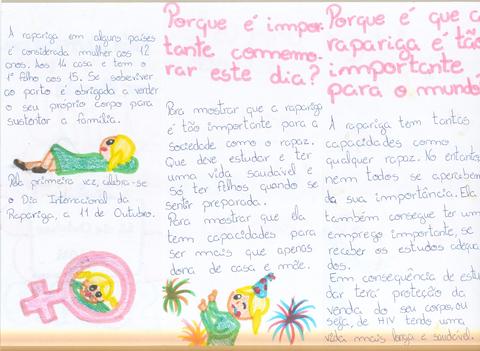 A rapariga em alguns países
é considerada mulher aos 12
anos. Aos 14 casa e tem o
1º filho aos 15. Se sobreviver
ao parto é obrigada a vender
o seu próprio corpo para
sustentar a família.
Pela primeira vez, celebra-se
o Dia Internacional da
Rapariga, a 11 de Outubro.
Porque é impor-
tante comemo-
rar este dia?
Para mostrar que a rapariga
é tão importante para a
sociedade como o rapaz.
Que deve estudar e ter
uma vida saudável e
só ter filhos quando se
sentir preparada.
Para mostrar que ela
tem capacidades para
ser mais que apenas
dona de casa e mãe.
Porque é que a
rapariga é tão
importante
para o mundo?
A rapariga tem tantas
capacidades como
qualquer rapaz. No entanto,
nem todos se apercebem
da sua importância. Ela
também consegue ter um
emprego importante, se
receber os estudos adequa-
dos.
Em consequência de estu-
dar terá proteção da
venda do seu corpo, ou
seja, de HIV tendo uma
vida mais longa e saudável.